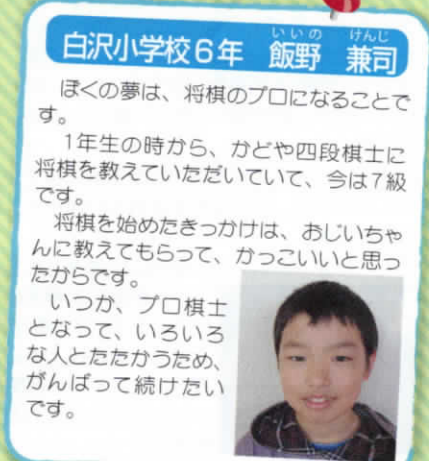 白沢小学校6年 飯野 兼司
いいの けんじ
ぼくの夢は、将棋のプロになることで
す。
1年生の時から、かどや四段棋士に
将棋を教えていただいていて、今は7級
です。
将棋を始めたきっかけは、おじいちゃ
んに教えてもらって、かっこいいと思っ
たからです。
いつか、プロ棋士
となって、いろいろ
な人とたたかうため、
がんばって続けたい
です。